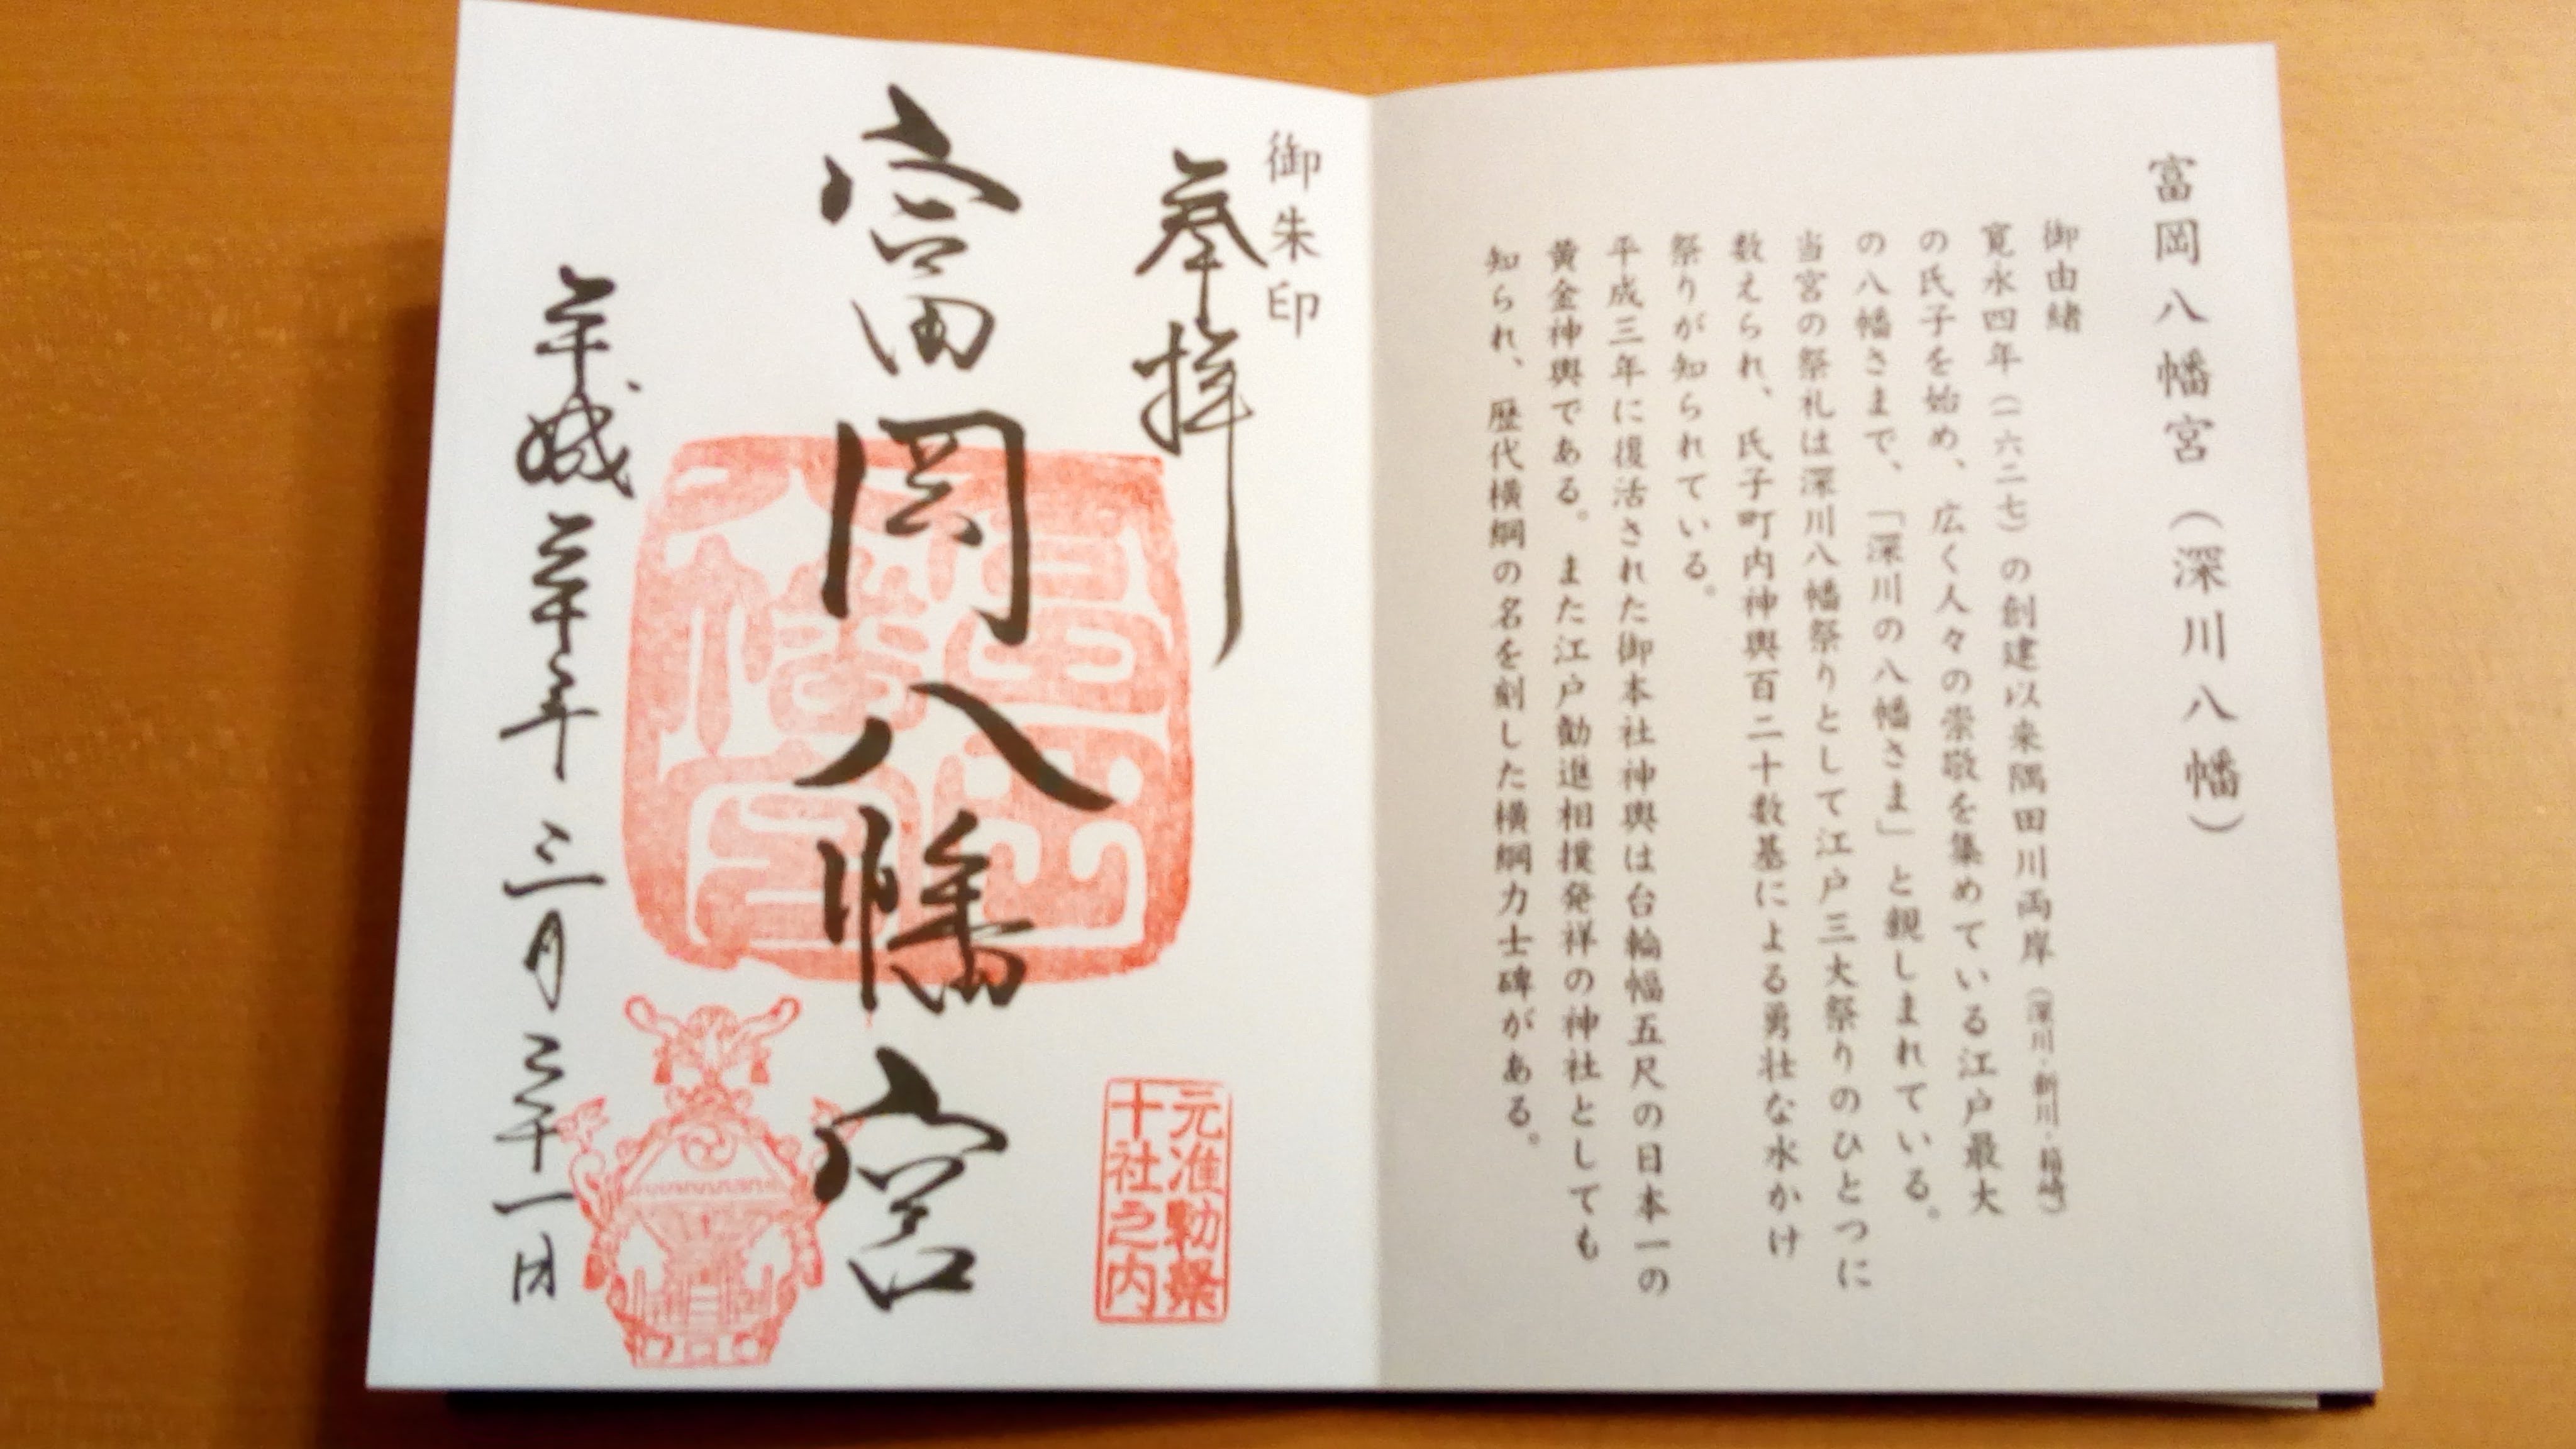 富岡八幡宮（深川八幡）
御由緒
寛永四年（一六二七）の創建以来隅田川両岸（深川・新川・箱崎）
の氏子を始め、広く人々の崇敬を集めている江戸最大
の八幡さまで、「深川の八幡さま」と親しまれている。
当宮の祭礼は深川八幡祭りとして江戸三大祭りのひとつに
数えられ、氏子町内神輿百二十数基による勇壮な水かけ
祭りが知られている。
平成三年に復活された御本社神輿は台輪幅五尺の日本一の
黄金神輿である。また江戸勧進相撲発祥の神社としても
知られ、歴代横綱の名を刻した横綱力士碑がある。
御朱印
奉拝
元准勅祭
十社之内
富岡八幡宮
富岡
八幡宮
平成三十年三月三十一日